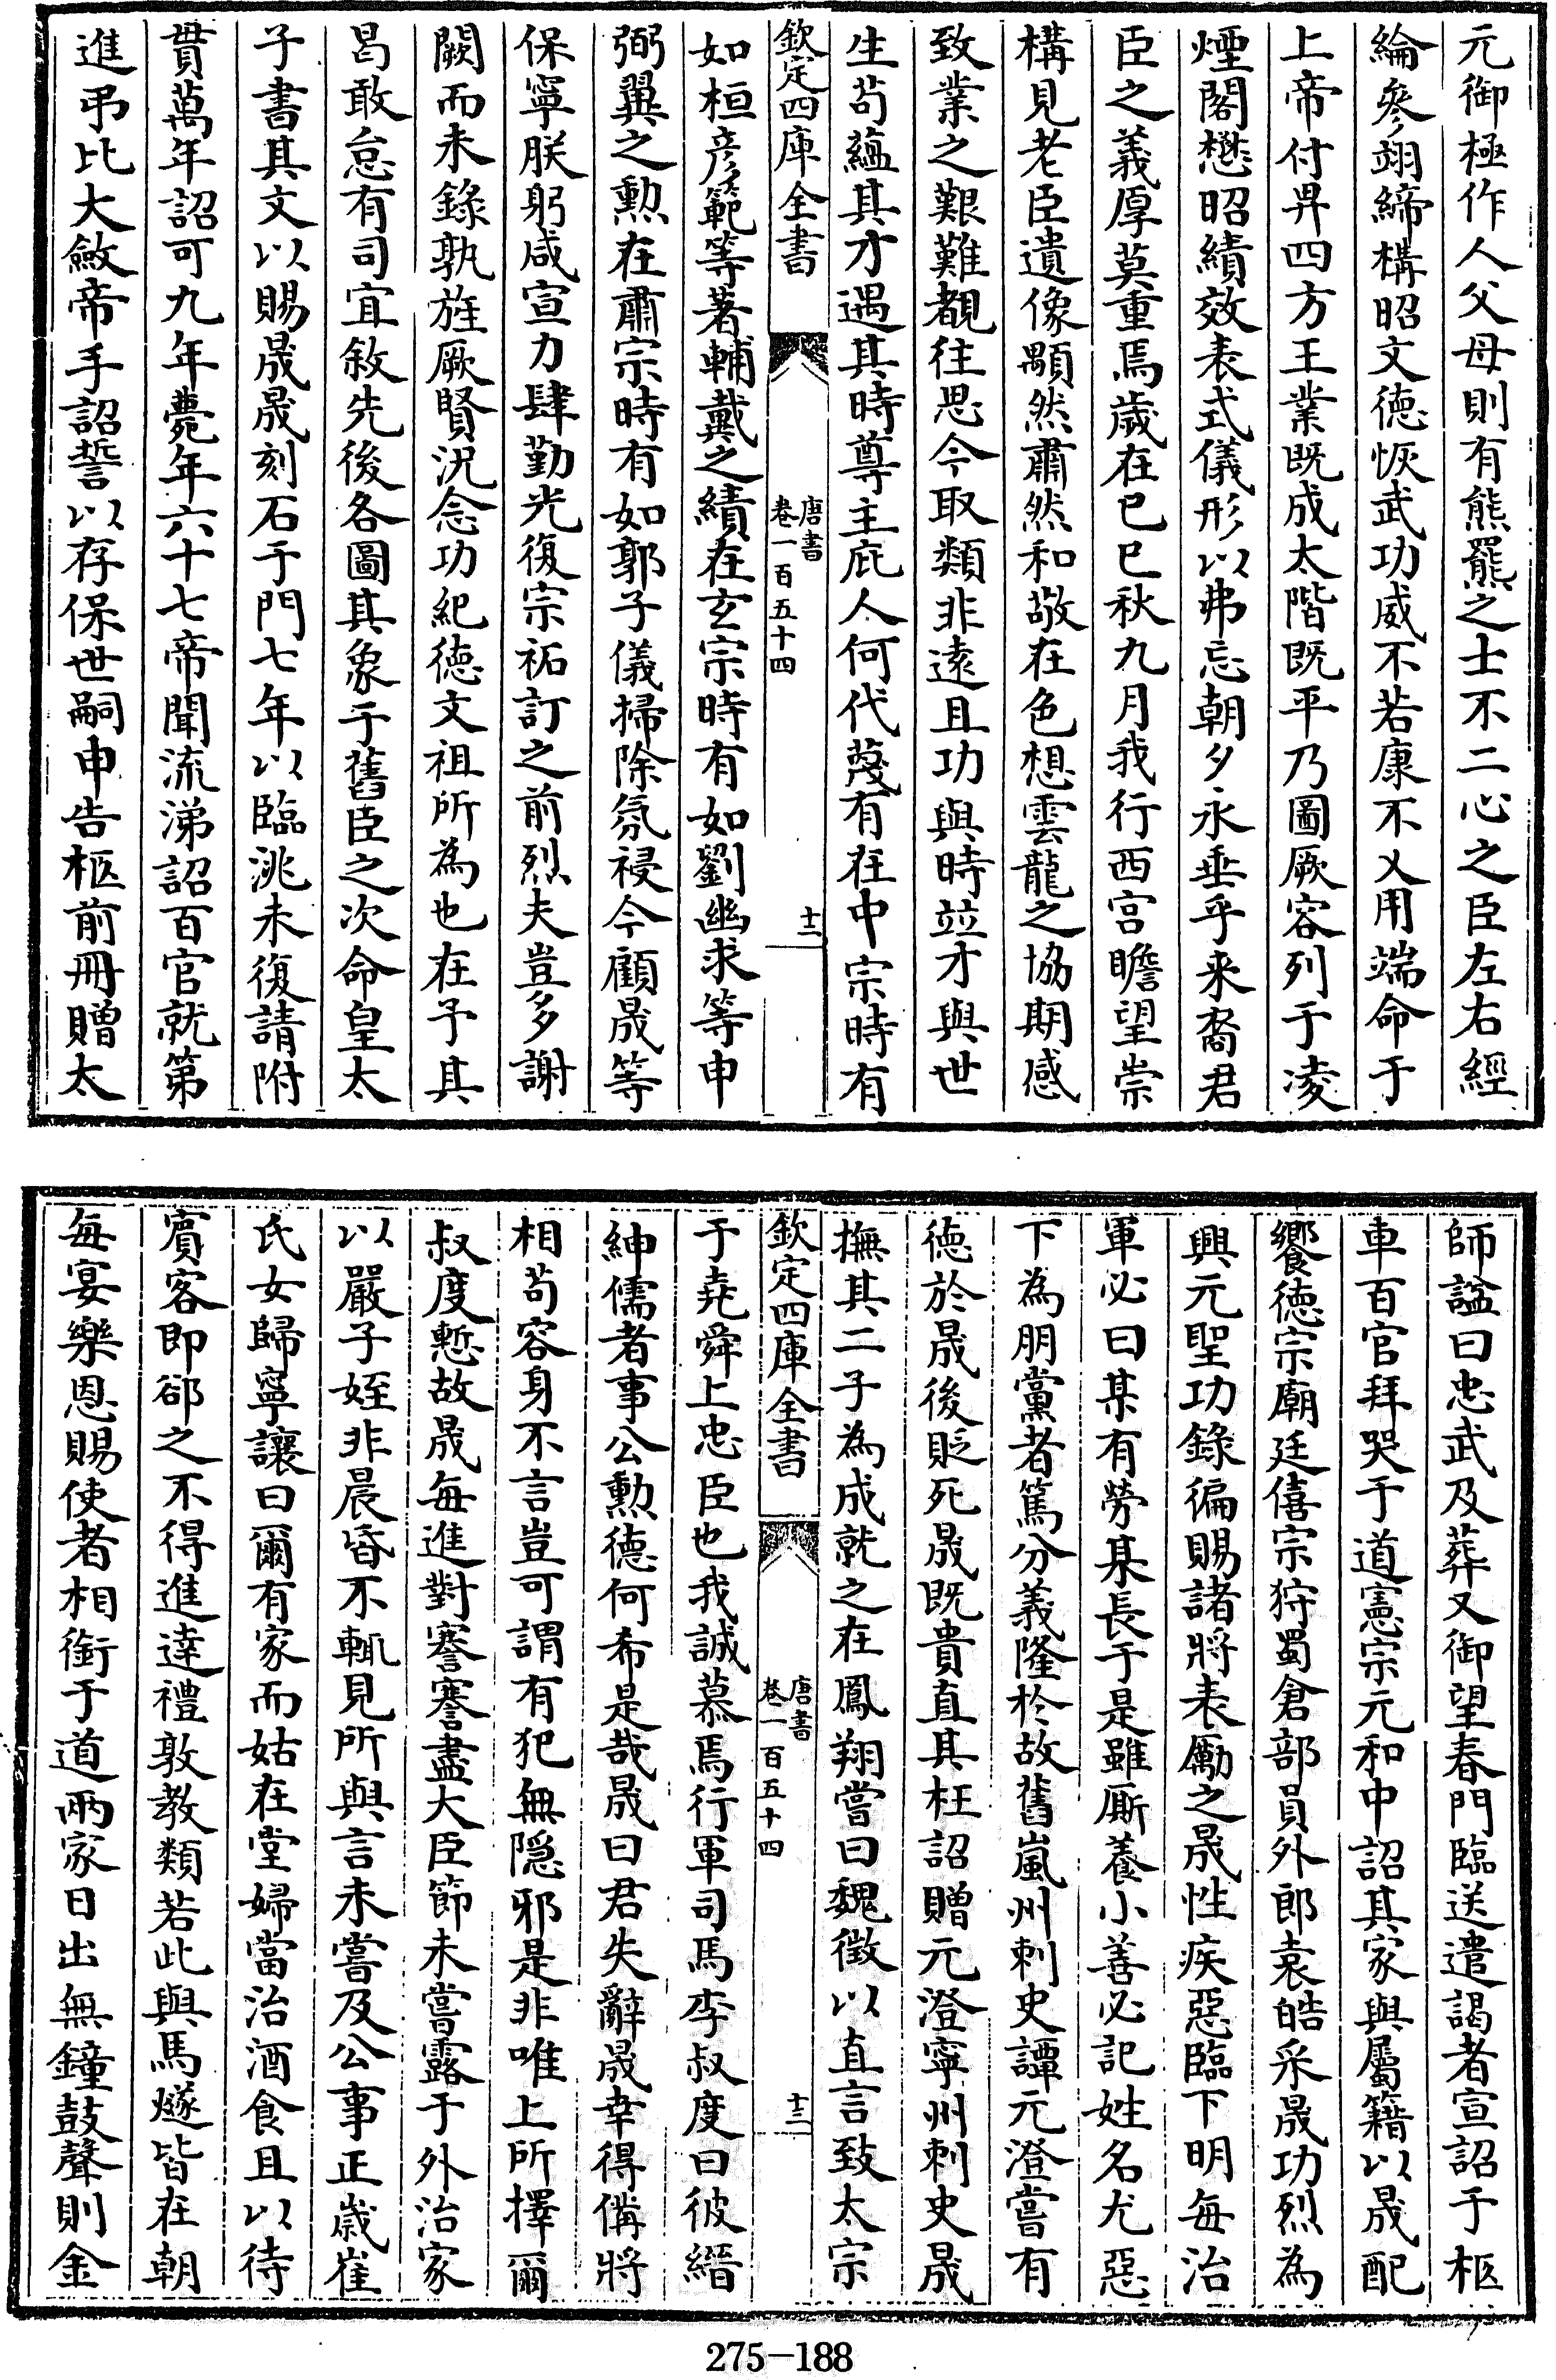 元御極作人父母則有熊羆之士不二心之臣左右經
綸參翊締構昭文徳恢武功威不若康不乂用端命于
上帝付畀四方王業既成太階既平乃圖厥容列于凌
煙閣懋昭績效表式儀形以弗忘朝夕永垂乎来裔君
臣之義厚莫重焉歲在已巳秋九月我行西宫瞻望崇
構見老臣遺像顒然肅然和敬在色想雲龍之協期感
致業之艱難覩往思今取類非逺且功與時竝才與世
生苟藴其才遇其時尊主庇人何代蔑有在中宗時有
欽定四庫全書
唐書
卷一百五十四
十二
如桓彦範等著輔戴之績在玄宗時有如劉幽求等申
弼翼之勲在肅宗時有如郭子儀掃除氛祲今顧晟等
保寧朕躬咸宣力肆勤光復宗祏訂之前烈夫豈多謝
闕而未錄孰旌厥賢況念功紀徳文祖所為也在予其
曷敢怠有司宜敘先後各圖其象于舊臣之次命皇太
子書其文以賜晟晟刻石于門七年以臨洮未復請附
貫萬年詔可九年薨年六十七帝聞流涕詔百官就第
進弔比大斂帝手詔誓以存保世嗣申告柩前冊贈太
師諡曰忠武及葬又御望春門臨送遣謁者宣詔于柩
車百官拜哭于道憲宗元和中詔其家與屬籍以晟配
饗徳宗廟廷僖宗狩蜀倉部員外郎袁皓采晟功烈為
興元聖功錄徧賜諸將表勵之晟性疾惡臨下明每治
軍必曰某有勞某長于是雖厮養小善必記姓名尤惡
下為朋黨者篤分義隆於故舊嵐州刺史譚元澄嘗有
徳於晟後貶死晟既貴直其枉詔贈元澄寧州刺史晟
撫其二子為成就之在鳳翔嘗曰魏徵以直言致太宗
欽定四庫全書
唐書
卷一百五十四
十三
于堯舜上忠臣也我誠慕焉行軍司馬李叔度曰彼縉
紳儒者事公勲徳何希是哉晟曰君失辭晟幸得備將
相苟容身不言豈可謂有犯無隠邪是非唯上所擇爾
叔度慙故晟每進對謇謇盡大臣節未嘗露于外治家
以嚴子姪非晨昏不輒見所與言未嘗及公事正歲崔
氏女歸寧讓曰爾有家而姑在堂婦當治酒食且以待
賓客即郤之不得進逹禮敦教類若此與馬燧皆在朝
每宴樂恩賜使者相銜于道兩家日出無鐘鼓聲則金
275-188